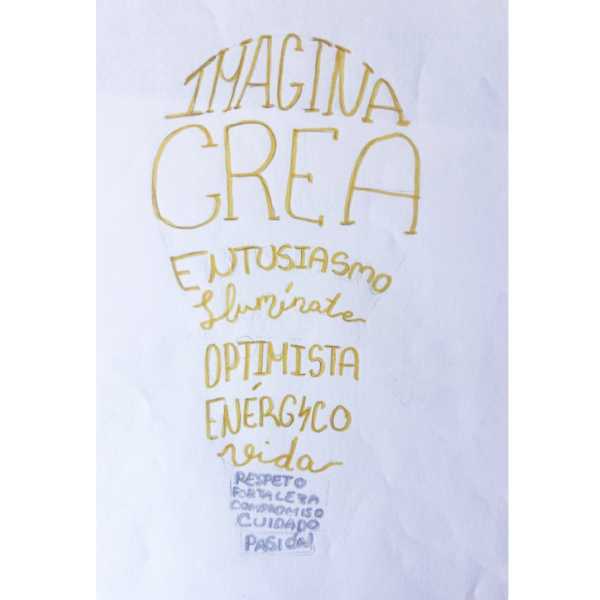 IMAGINA
CREA
ENTUSIASMO
Ilumínate
OPTIMISTA
ENÉRGICO
vida
RESPETO
FORTALEZA
COMPROMISO
CUIDADO
PASIÓN